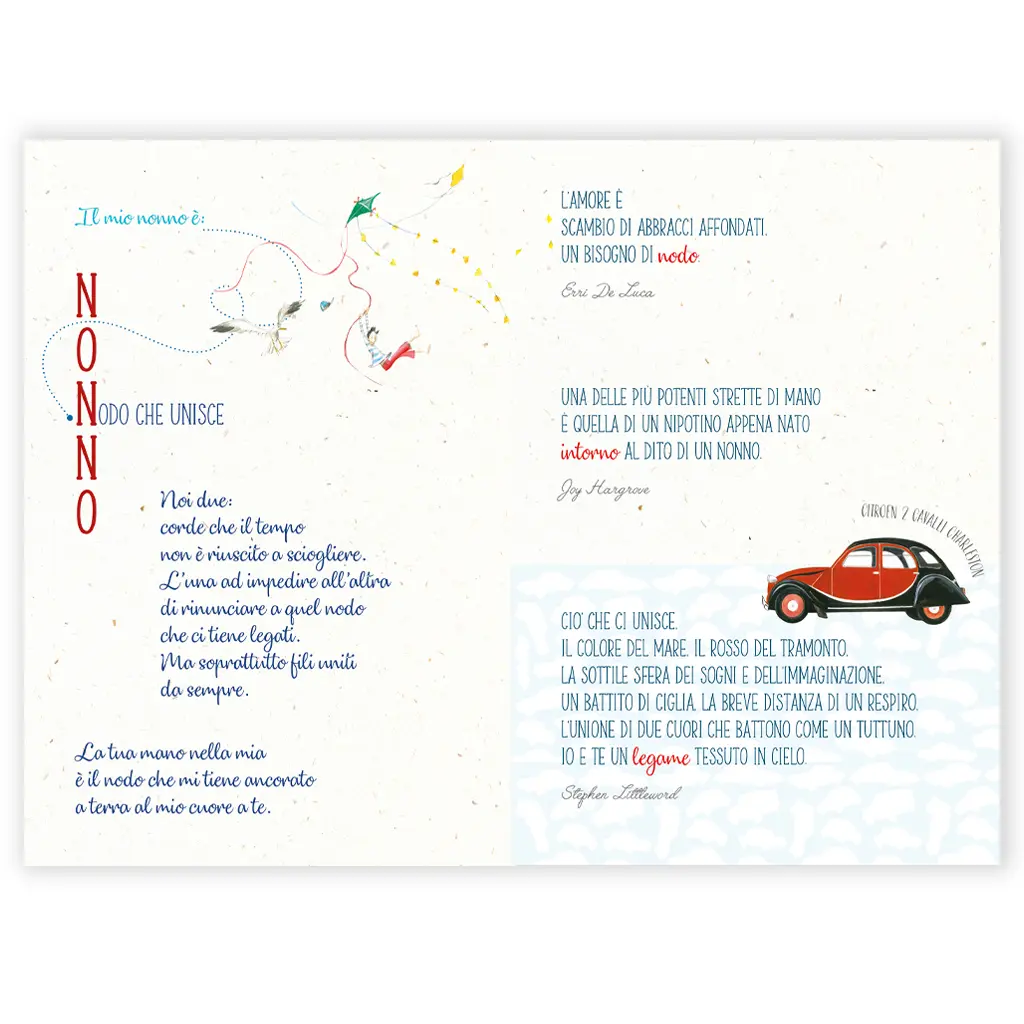 Il mio nonno è:
NONNO
NODO CHE UNISCE
Noi due:
corde che il tempo
non è riuscito a sciogliere.
L'una ad impedire all'altra
di rinunciare a quel nodo
che ci tiene legati.
Ma soprattutto fili uniti
da sempre.
La tua mano nella mia
è il nodo che mi tiene ancorato
a terra al mio cuore a te.
L'AMORE È
SCAMBIO DI ABBRACCI AFFONDATI.
UN BISOGNO DI nodo.
Erri De Luca
UNA DELLE PIÙ POTENTI STRETTE DI MANO
È QUELLA DI UN NIPOTINO APPENA NATO
intorno AL DITO DI UN NONNO.
Joy Hargrove
CITROEN 2 CAVALLI CHARLESTON
CIO' CHE CI UNISCE.
IL COLORE DEL MARE. IL ROSSO DEL TRAMONTO.
LA SOTTILE SFERA DEI SOGNI E DELL'IMMAGINAZIONE.
UN BATTITO DI CIGLIA. LA BREVE DISTANZA DI UN RESPIRO.
L'UNIONE DI DUE CUORI CHE BATTONO COME UN TUTTUNO.
IO E TE UN legame TESSUTO IN CIELO.
Stephen Littleword